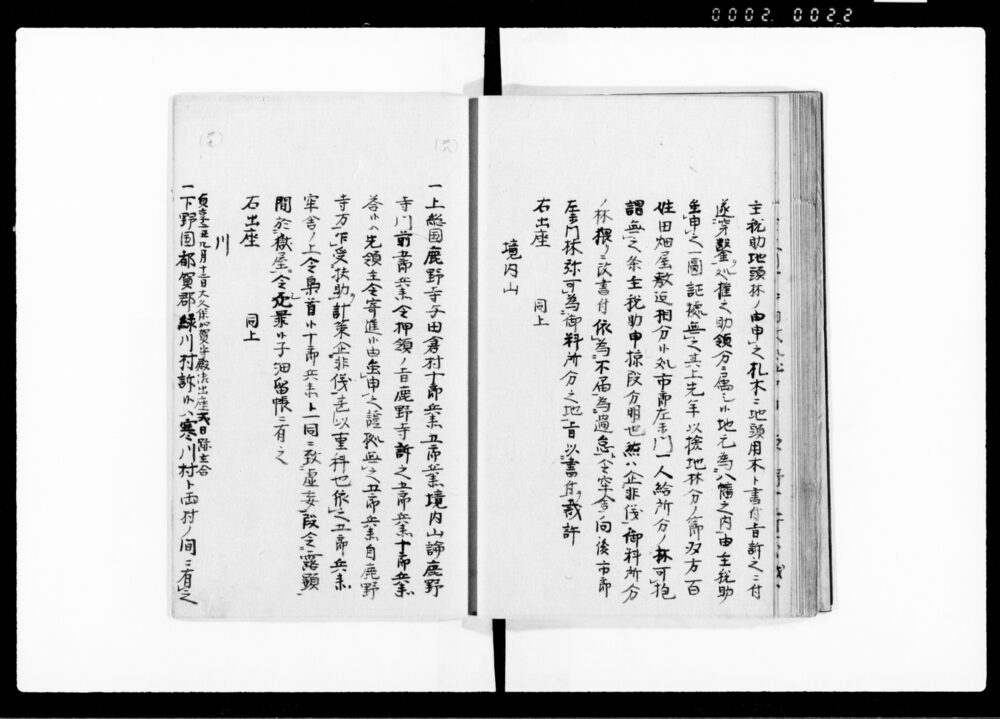 0002 0022
主税助地頭林ノ由申之札木ニ地頭用木ト書付旨訴之ニ付
遂穿鑿処権之助領分ニ属シ小地元為八幡之内由主税助
申之一圓証拠無之其上先年以検地林分ノ節双方百
姓田畑屋敷迄相分小処市郎左衛門一人給所分ノ林可抱
謂無之条主税助申掠段分明也然ハ企非儀御料所分
ノ林猥ニ改書付依為不届為過怠令牢舎向後市郎
左衛門林弥可為御料所分之地旨以書付裁許
右出座 同上
境内山
一上総国鹿野寺与田倉村十郎兵衛五郎兵衛境内山論鹿野
寺門前五郎兵衛令押領ノ旨鹿野寺訴之五郎兵衛十郎兵衛
答小ハ先領主令寄進小由申之證拠無之五郎兵衛自鹿野
寺万乍受扶助計策企非儀甚以重科也依之五郎兵衛
牢舎ノ上令梟首小十郎兵衛ト一同ニ致虚妄段令露顕
間於獄屋令死罪小子細留帳ニ有之
右出座 同上
川
貞享二丑九月十二日大久保加賀守殿被出座式日跡立合
一下野国都賀郡緑川村訴小ハ寒川村ト両村ノ間ニ有之